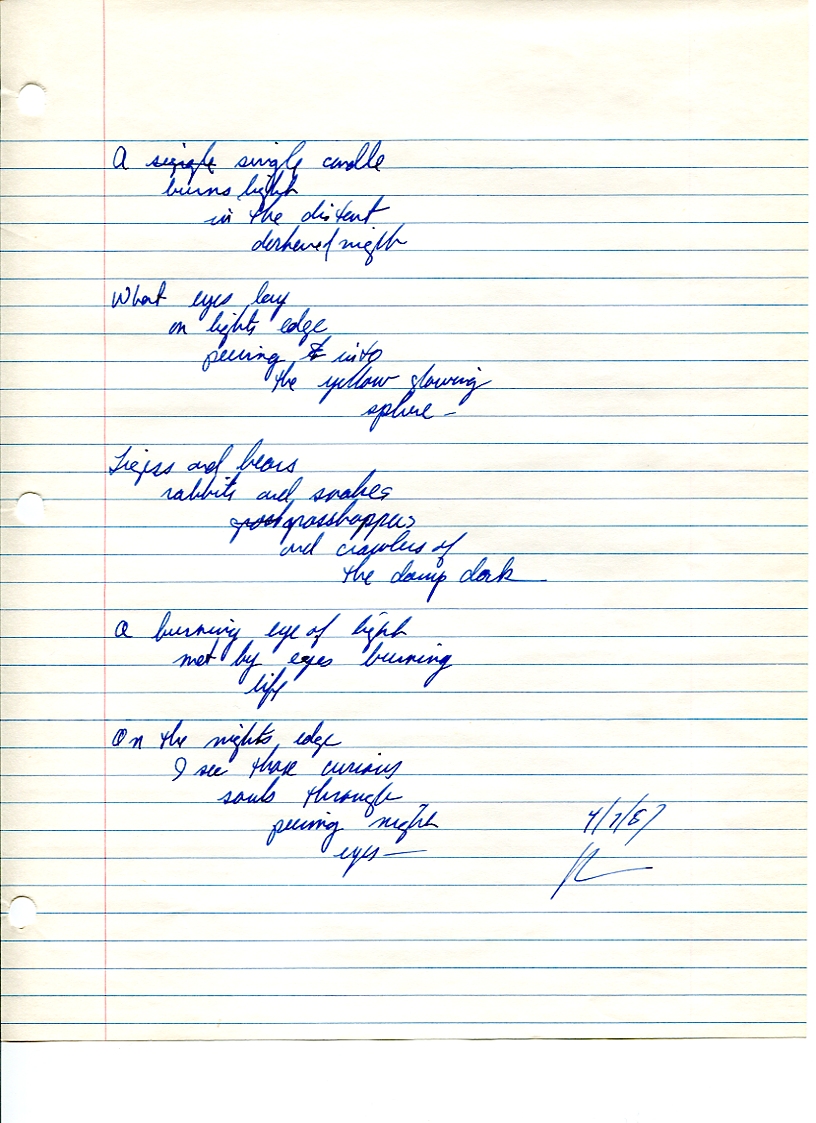 A single single candle
burns light
in the distent
darkened night
What eyes lay
on lights edge
peering & into
the yellow glowing
sphere –
Tigers and bears
rabbits and snakes
grasshoppers
and crawlers of
the damp dark
A burning eye of light
met by eyes burning
life
On the nights edge
I see those curious
souls through
peering night
eyes —
4/7/87